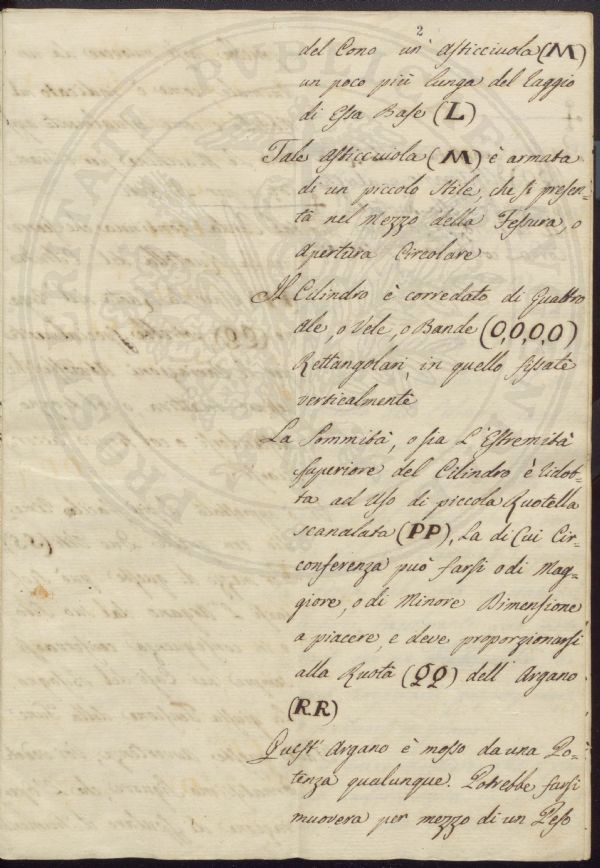 2
del Cono un' asticciuola (M)
un poco più lunga del Raggio
di Essa Base (L)
Tale asticciuola (M) è armata
di un piccolo Stile, che si presen-
ta nel mezzo della Fessura, o
apertura Circolare
Il Cilindro è corredato di Quattro
Ale, o Vele, o Bande (O,O,O,O)
Rettangolari, in quello fissate
verticalmente
La Sommità, o sia L'Estremità
superiore del Cilindro è ridot-
ta ad Uso di piccola Ruotella
scanalata (PP), La di Cui Cir-
conferenza può farsi o di Mag-
giore, o di Minore Dimensione
a piacere, e deve proporzionarsi
alla Ruota (QQ) dell' Argano
(R.R)
Quest' Argano è mosso da una Po-
tenza qualunque. Potrebbe farsi
muovera per mezzo di un Peso